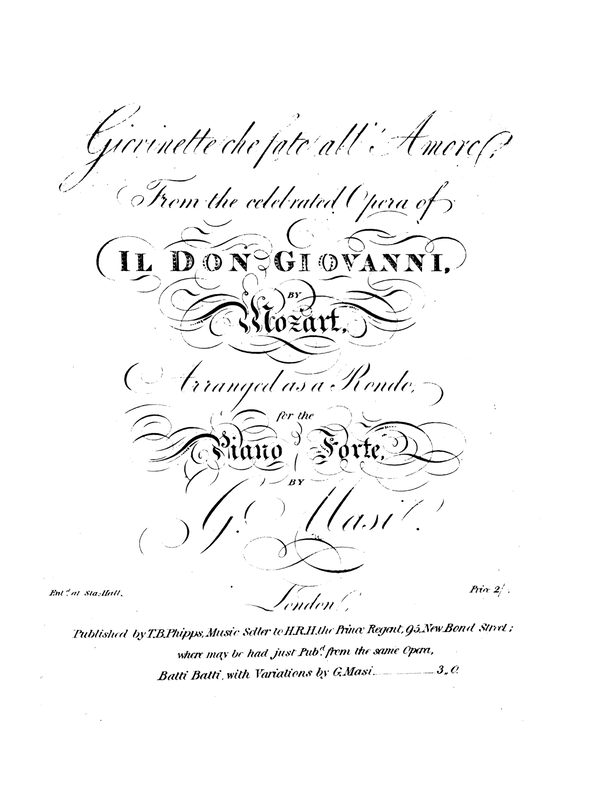 Giovinette che fate all' Amore,
From the celebrated Opera of
IL DON GIOVANNI,
BY
Mozart,
Arranged as a Rondo,
for the
Piano Forte,
BY
G. Masi.
Ent.d at Sta. Hall.
Price 2/.
London,
Published by T.B. Phipps, Music Seller to H.R.H. the Prince Regent, 95, New Bond Street;
where may be had just Pub.d from the same Opera,
Batti Batti, with Variations by G. Masi. 3„0.